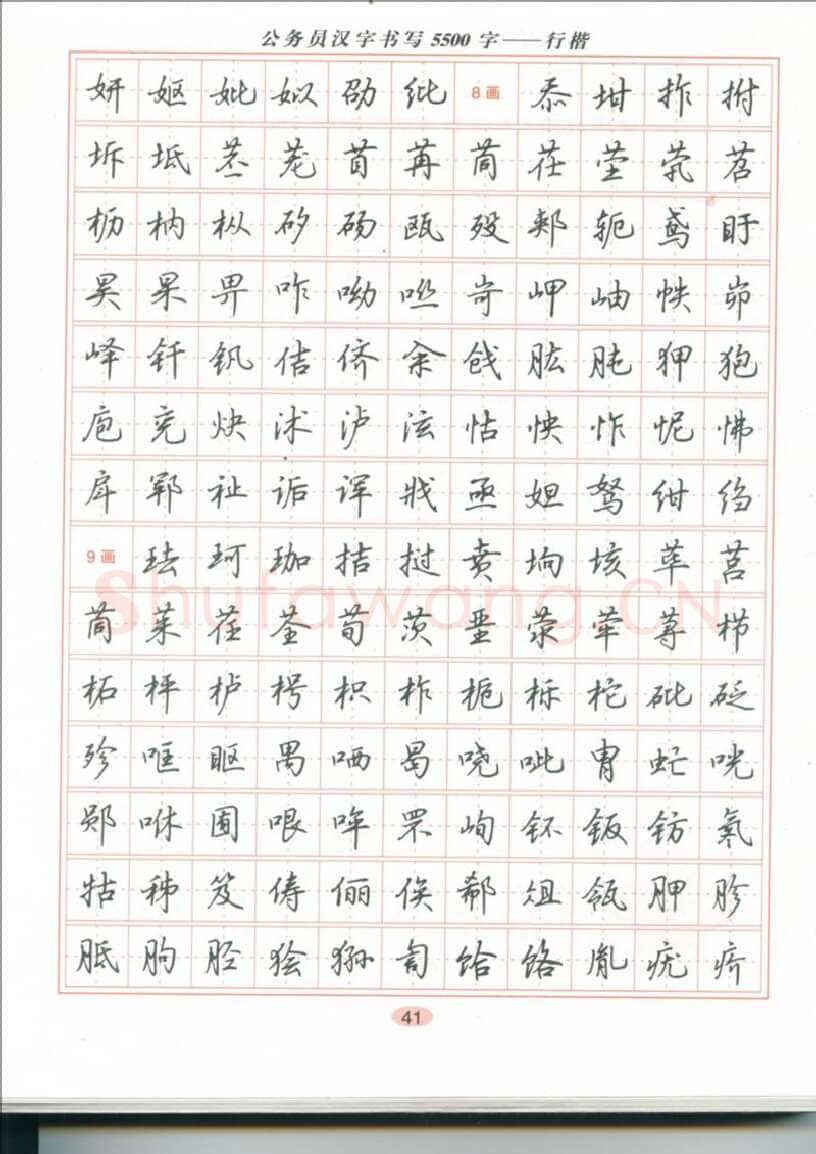 公务员汉字书写5500字——行楷
妍 妪 妣 姒 劭 纰 8画 忝 坩 拃 拊
坼 坻 苤 茏 苜 苒 苘 茌 茔 茕 茗
枥 枘 枞 矽 矾 瓯 殁 郏 轭 鸢 盱
昊 杲 畀 咋 呦 咝 岢 岬 岫 帙 峁
峄 钎 钒 佶 侪 籴 戗 肱 肫 狎 狍
庖 兖 炔 沭 泸 泫 怙 怏 怍 怩 怫
戽 郓 祉 诟 诨 戕 亟 妲 驽 绀 绉
9画 珐 珂 珈 拮 挞 贲 垧 垓 荜 莒
茼 茱 荏 荃 荀 茨 垩 荥 荦 荨 栉
柘 枰 栌 枵 枳 柞 栀 栎 柁 砒 砭
殄 哐 眍 禺 哂 曷 哓 呲 胄 虻 咣
郧 咻 囿 哏 哞 罘 峋 钚 钣 钫 氡
牯 秭 笈 俦 俪 俟 郗 俎 瓴 胛 胗
胝 朐 胫 狯 狲 訇 饴 饹 胤 疣 疥
41
Shufawang.CN